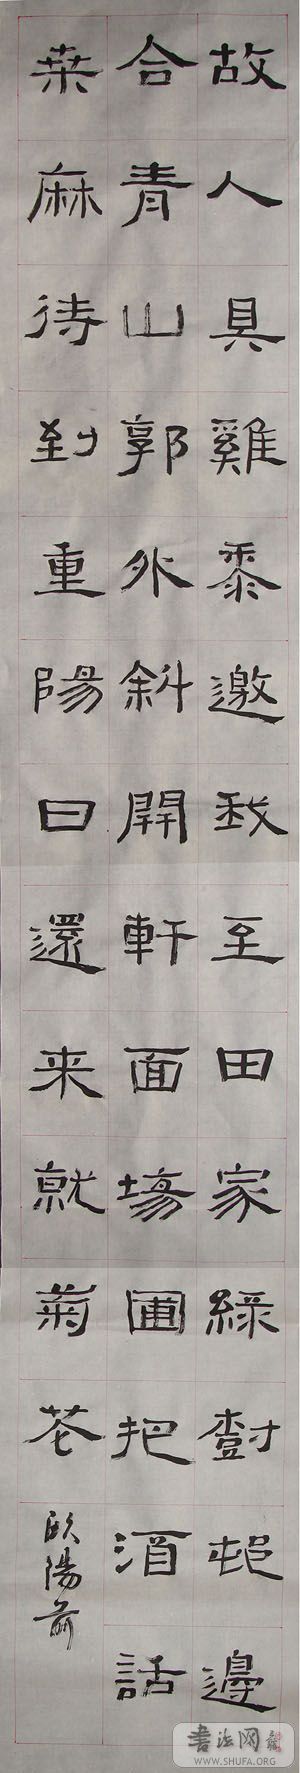 故人具雞黍邀我至田家綠樹邨邊
合青山郭外斜開軒面場圃把酒話
桒麻待到重陽日還来就菊花
欧陽
书法网
WWW.SHUFA.ORG